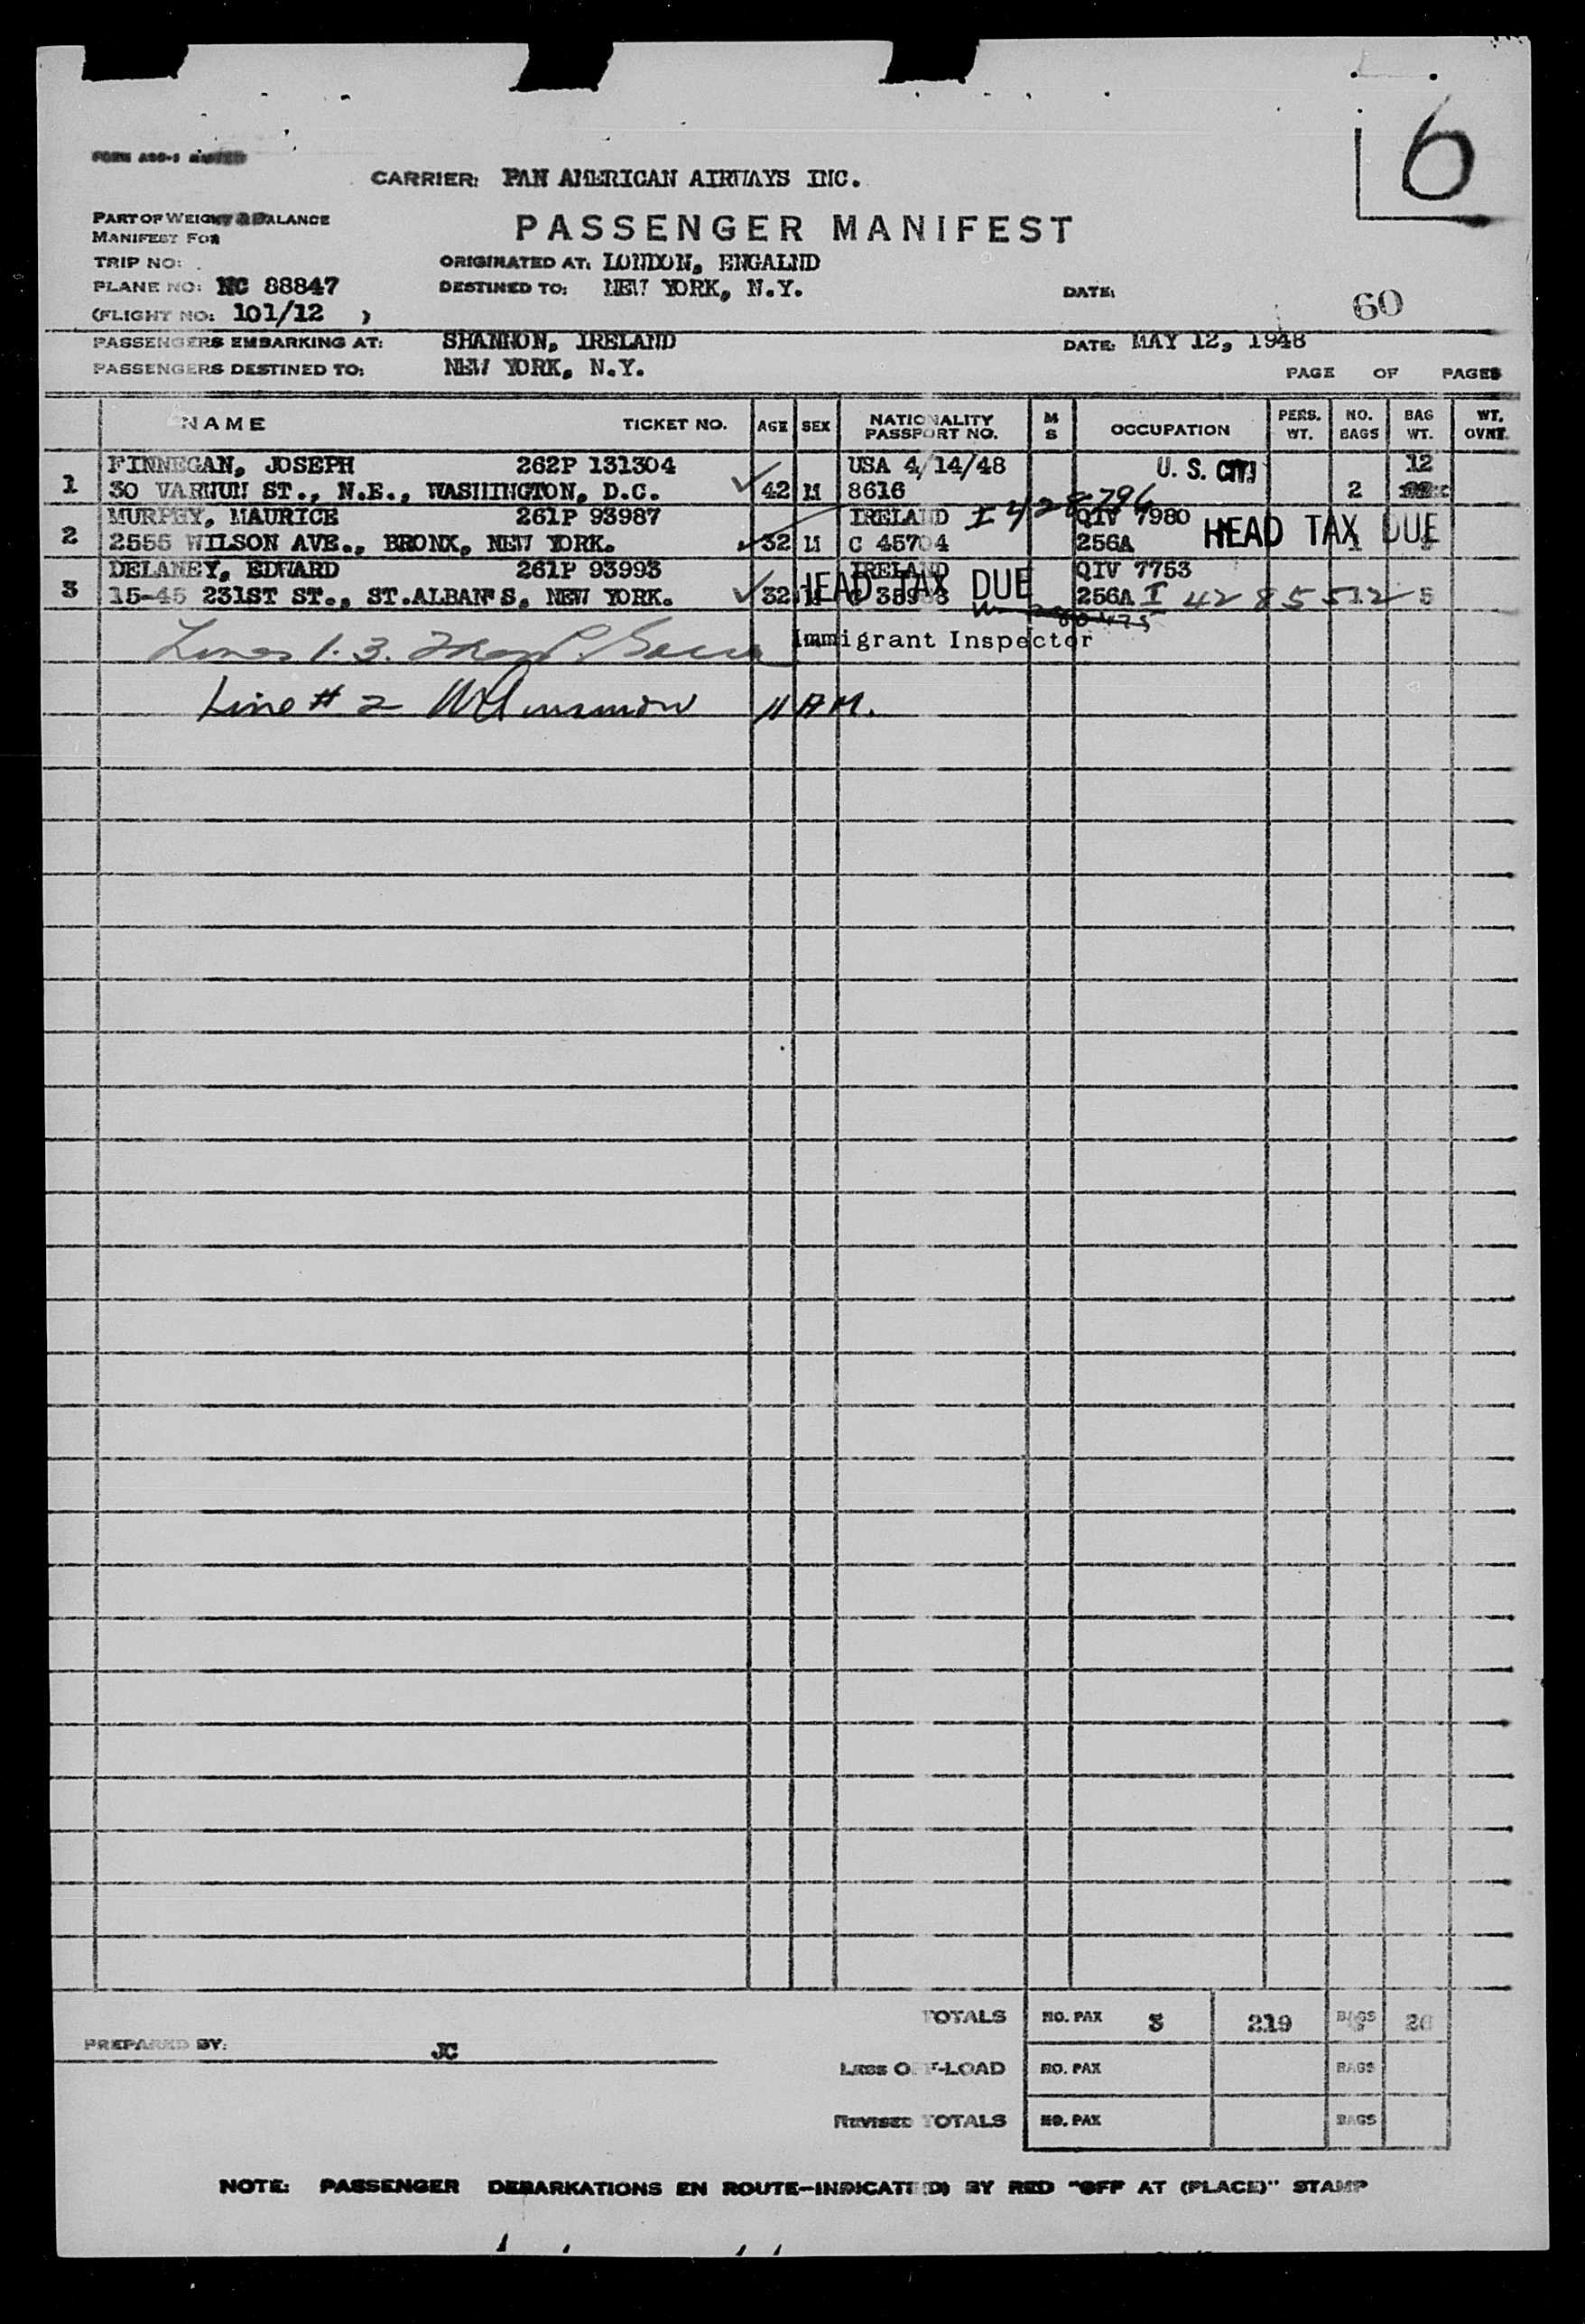 6
CARRIER: PAN AMERICAN AIRWAYS INC.
PART OF WEIGHT & BALANCE
MANIFEST FOR
PASSENGER MANIFEST
TRIP NO:
ORIGINATED AT: LONDON, ENGALND
PLANE NO: NC 88847
DESTINED TO: NEW YORK, N.Y.
DATE:
60
(FLIGHT NO: 101/12 )
PASSENGERS EMBARKING AT: SHANNON, IRELAND
DATE: MAY 12, 1948
PASSENGERS DESTINED TO: NEW YORK, N.Y.
PAGE OF PAGES
NAME TICKET NO. AGE SEX NATIONALITY PASSPORT NO. M S OCCUPATION PERS. WT. NO. BAGS BAG WT. WT. OVNT.
FINNEGAN, JOSEPH 262P 131304 USA 4/14/48 U. S. CITI 12
1 30 VARNUM ST., N.E., WASHINGTON, D.C. 42 M 8616 2
MURPHY, MAURICE 261P 93987 IRELAND I 428796 QIV 7980 HEAD TAX DUE
2 2555 WILSON AVE., BRONX, NEW YORK. 32 M C 45704 256A 1
DELANEY, EDWARD 261P 93993 IRELAND HEAD TAX DUE QIV 7753
3 15-45 231ST ST., ST.ALBAN'S, NEW YORK. 32 M 256A I 4285512 5
Lines 1.3. Immigrant Inspector
Line # 2 11 AM.
TOTALS NO. PAX 3 219 BAGS
PREPARED BY: JC
LESS OFF-LOAD NO. PAX BAGS
REVISED TOTALS NO. PAX BAGS
NOTE: PASSENGER DEBARKATIONS EN ROUTE—INDICATED) BY RED "OFF AT (PLACE)" STAMP